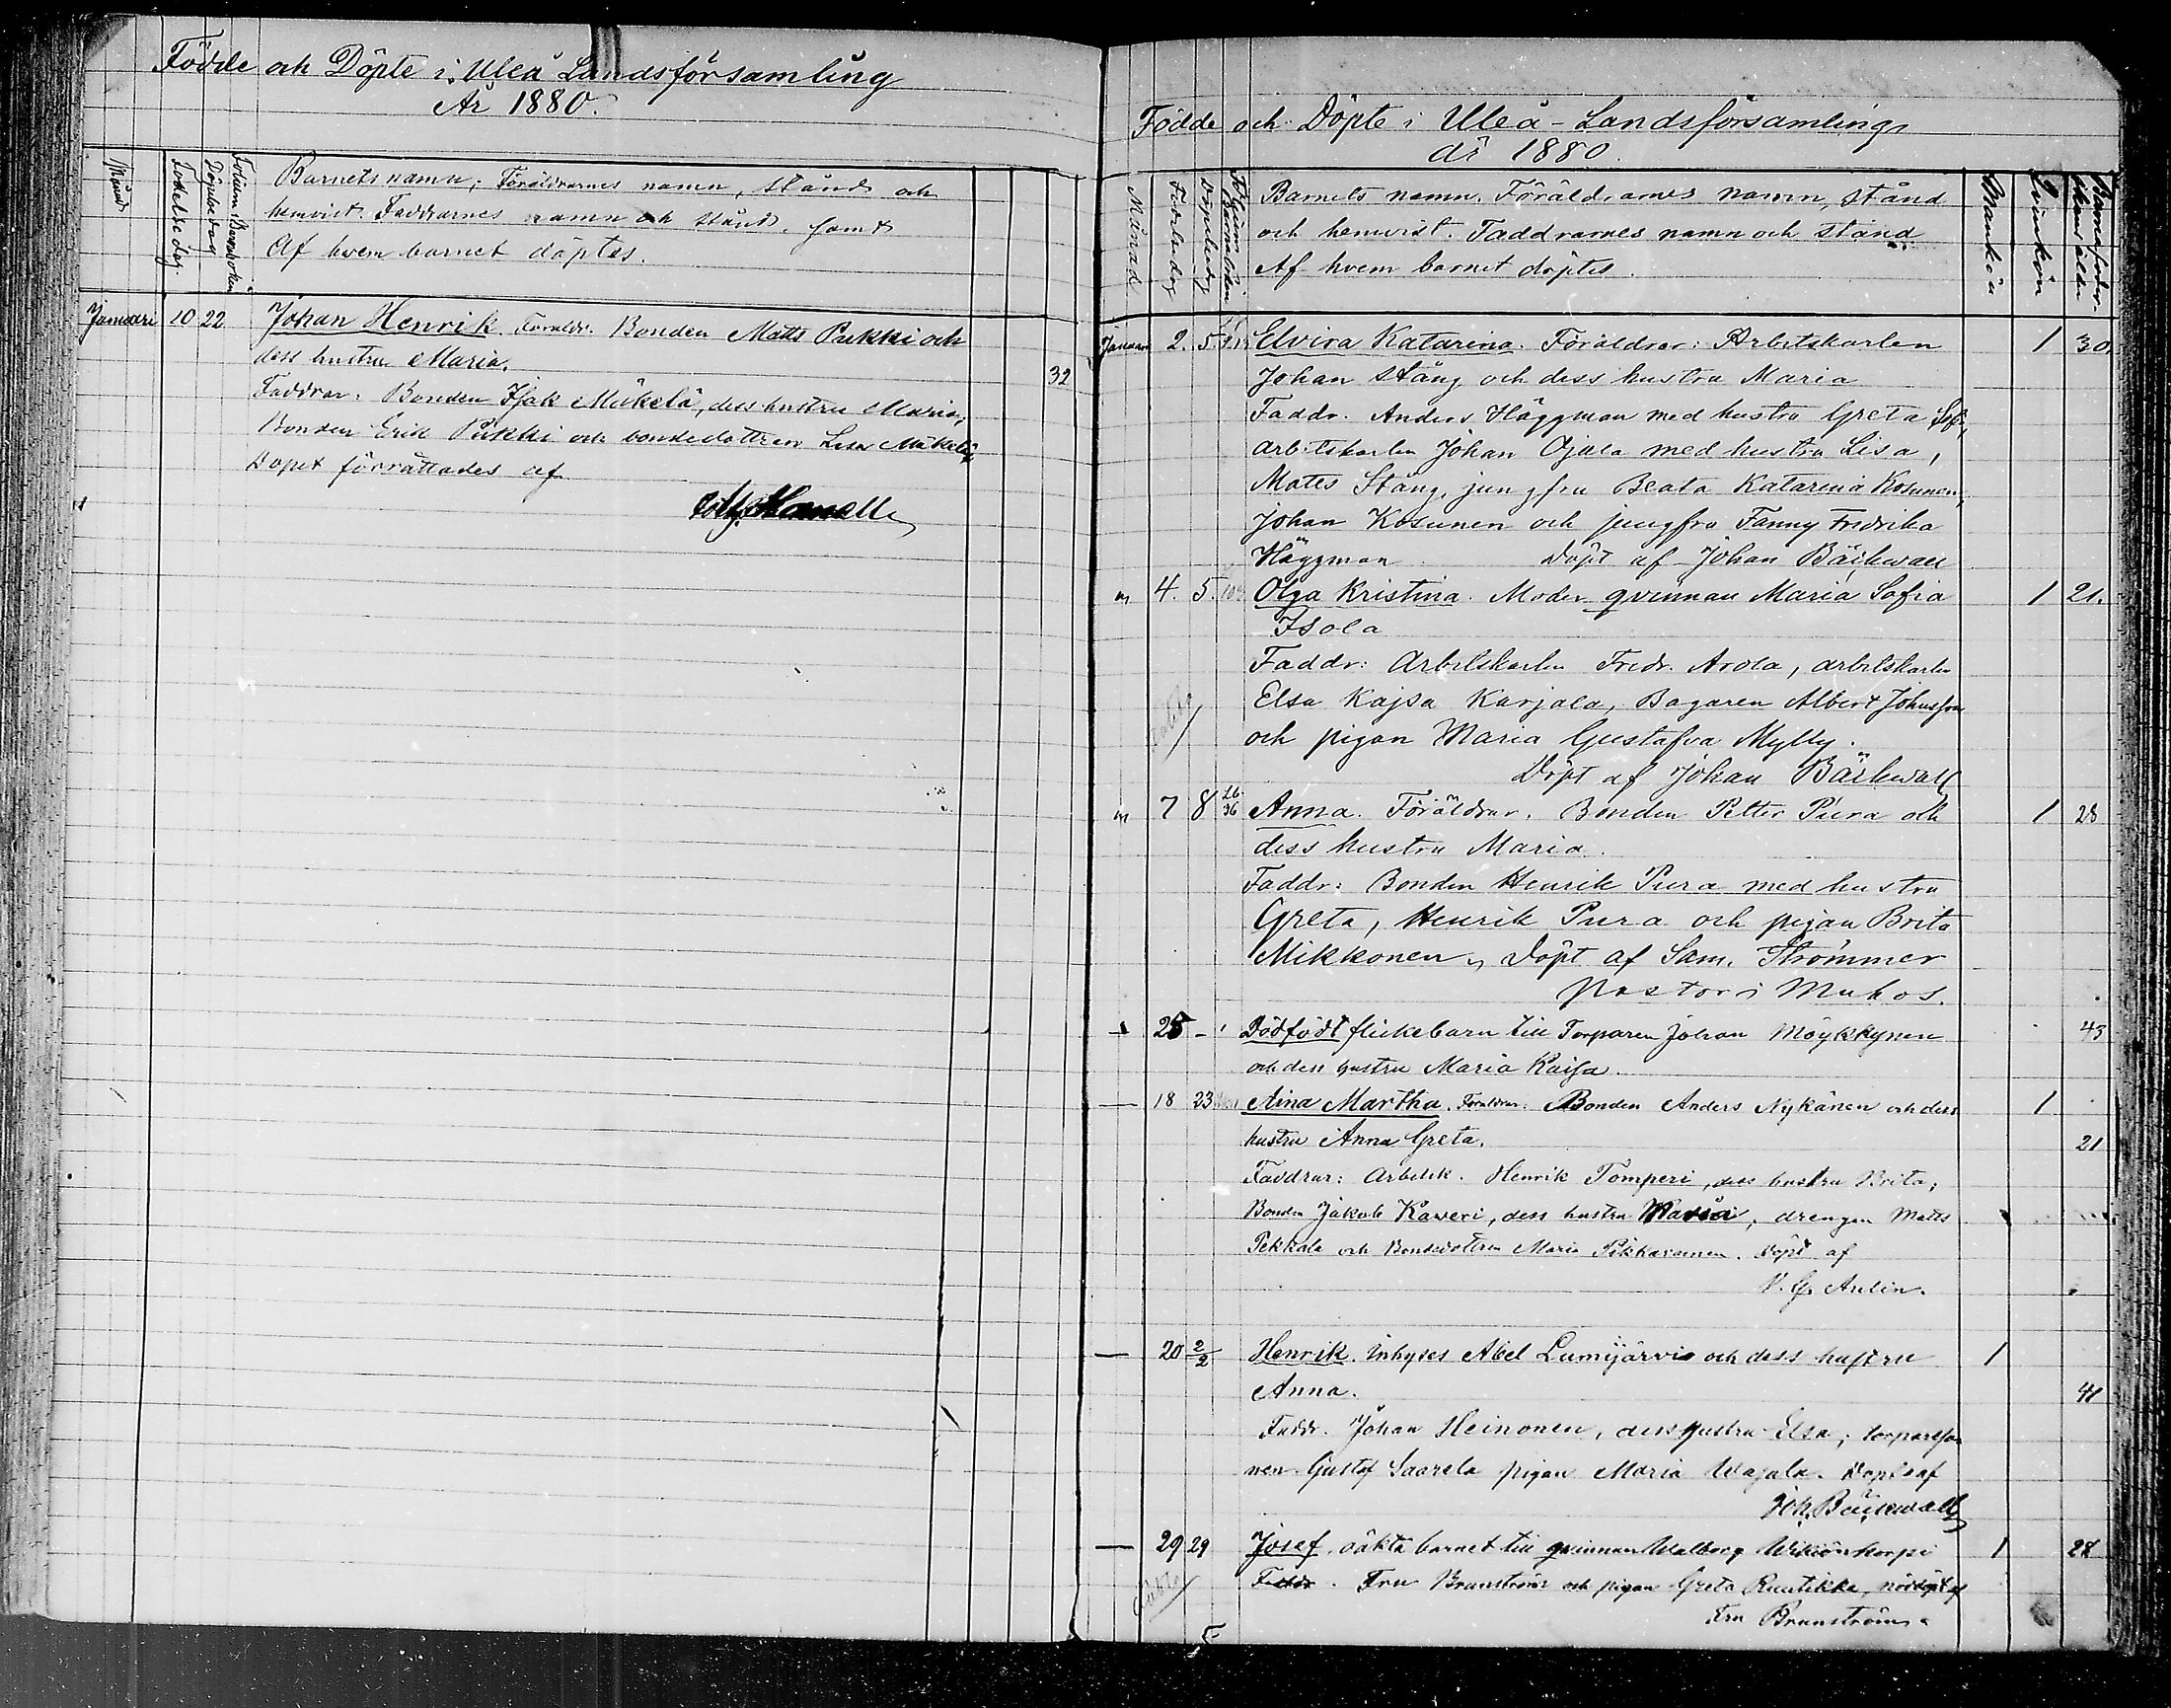 Födde och Döpte i Uleå Landsförsamling
År 1880.
Månad
Födelsedag
Döpelsedag
Folium i Barnboken
Barnets namn; Föräldrarnes namn, stånd och
hemvist. Faddrarnes namn och stånd, samt
Af hvem barnet döptes.
Januari 10 22 Johan Henrik Föräldr. Bonden Matts Pukki och
dess hustru Maria. 32
Faddrar: Bonden Isak Mäkelä, dess hustru Maria,
Bonden Erik Pukki och bondedottren Lisa Mäkelä
Dopet förrättades af
Födde och Döpte i Uleå-Landsförsamling
år 1880.
Månad
Födelsedag
Döpelsedag
Barnets namn. Föräldrarnes namn, stånd
och hemvist. Faddrarnes namn och stånd
Af hvem barnet döptes.
Mankön
Qvinkön
Januari 2. 5 Elvira Katarina. Föräldrar: Arbetskarlen 1 30.
Johan Stång och dess hustru Maria
Faddr. Anders Häggman med hustru Greta Sofia,
arbetskarlen Johan Ojala med hustru Lisa,
Matts Stång, jungfru Beata Katarina Kosunen,
Johan Kosunen och jungfru Fanny Fredrika
Häggman. Döpt af Johan Bäckwall
" 4. 5. Olga Kristina. Moder qvinnan Maria Sofia 1 21.
Isola
Faddr: Arbetskarlen Fredr. Arola, arbetskarlen
Elsa Kajsa Karjala, Bagaren Albert Johansson
och pigan Maria Gustafva Mylly.
Döpt af Johan Bäckwall
" 7 8 26 36 Anna. Föräldrar. Bonden Petter Pura och 1 28
dess hustru Maria.
Faddr: Bonden Henrik Pura med hustru
Greta, Henrik Pura och pigan Brita
Mikkonen, Döpt af Sam. Strömmer
Pastor i Muhos.
— 25 - Dödfödt flickebarn till Torparen Johan Möykkynen 43
och dess hustru Maria Kaisa.
— 18 23 Aina Martha. Föräldrar: Bonden Anders Nykänen och dess 1
hustru Anna Greta. 21
Faddrar: Arbetsk. Henrik Tomperi, dess hustru Brita;
Bonden Jakob Kaveri, dess hustru Maria, drengen Matts
Pekkala och Bondedottren Maria Pikkarainen. Döpt af
— 20 2/2 Henrik. Inhyses Abel Lumijärvi och dess hustru 1
Anna. 41
Faddr. Johan Heinonen, dess hustru Elsa; torpareso
nen Gustaf Saarela pigan Maria Wajala. Döpt af
Joh. Bäckwall
— 29 29 Josef. oäkta barnet till qvinnan Walborg 1
oäkta Faddr. Fru Brunström och pigan Greta Ruutikka, nöddöpt af
Fru Brunström.